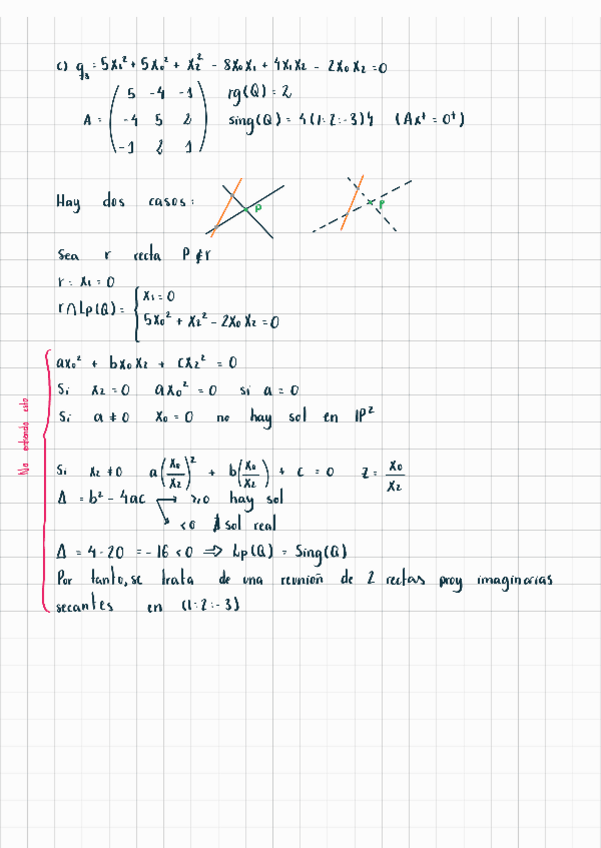 c) q₃ : 5x₁² + 5x₀² + x₂² - 8x₀x₁ + 4x₁x₂ - 2x₀x₂ = 0
A = ( 5 -4 -1 ) rg(Q) = 2
( -4 5 2 ) sing(Q) = {(1:2:-3)} (Axᵗ = 0ᵗ)
( -1 2 1 )
Hay dos casos: P P
Sea r recta P ∉ r
r = x₁ = 0
r ∩ Lp(Q) = { x₁ = 0
5x₀² + x₂² - 2x₀x₂ = 0
No entiendo esto
ax₀² + bx₀x₂ + cx₂² = 0
Si x₂ = 0 ax₀² = 0 si a = 0
Si a ≠ 0 x₀ = 0 no hay sol en IP²
Si x₂ ≠ 0 a(x₀/x₂)² + b(x₀/x₂) + c = 0 z = x₀/x₂
Δ = b² - 4ac → ≥0 hay sol
↘ <0 ∄ sol real
Δ = 4 - 20 = -16 < 0 ⇒ Lp(Q) = Sing(Q)
Por tanto, se trata de una reunión de 2 rectas proy imaginarias
secantes en (1:2:-3)